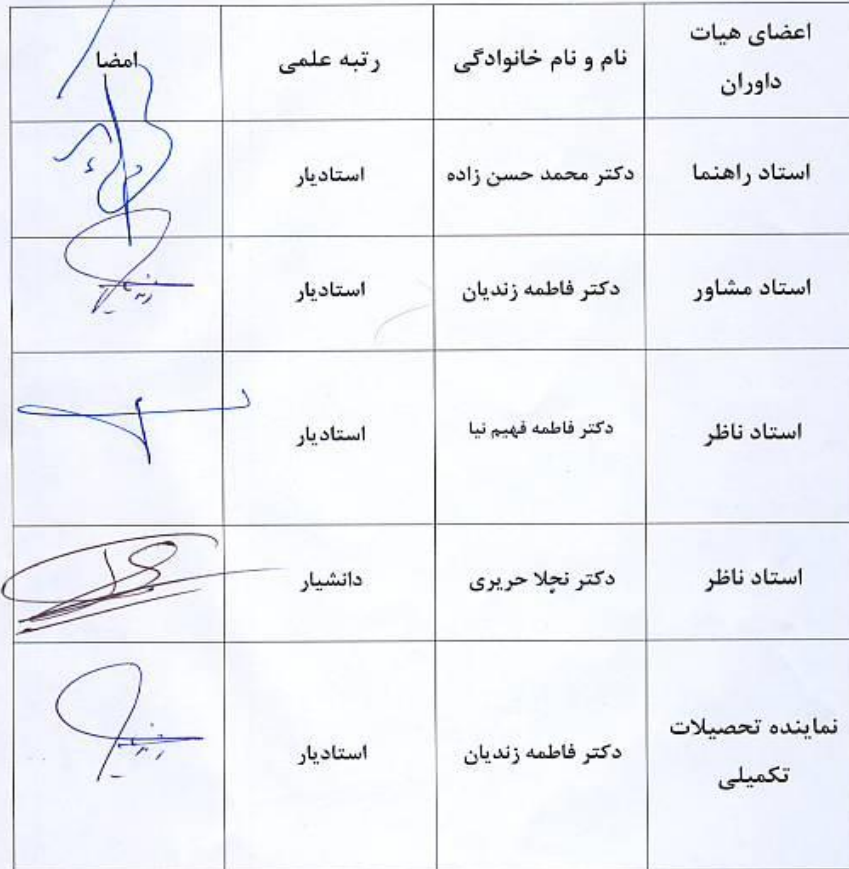 اعضای هیات داوران نام و نام خانوادگی رتبه علمی امضا
استاد راهنما دکتر محمد حسن زاده استادیار
استاد مشاور دکتر فاطمه زندیان استادیار
استاد ناظر دکتر فاطمه فهیم نیا استادیار
استاد ناظر دکتر نجلا حریری دانشیار
نماینده تحصیلات تکمیلی دکتر فاطمه زندیان استادیار